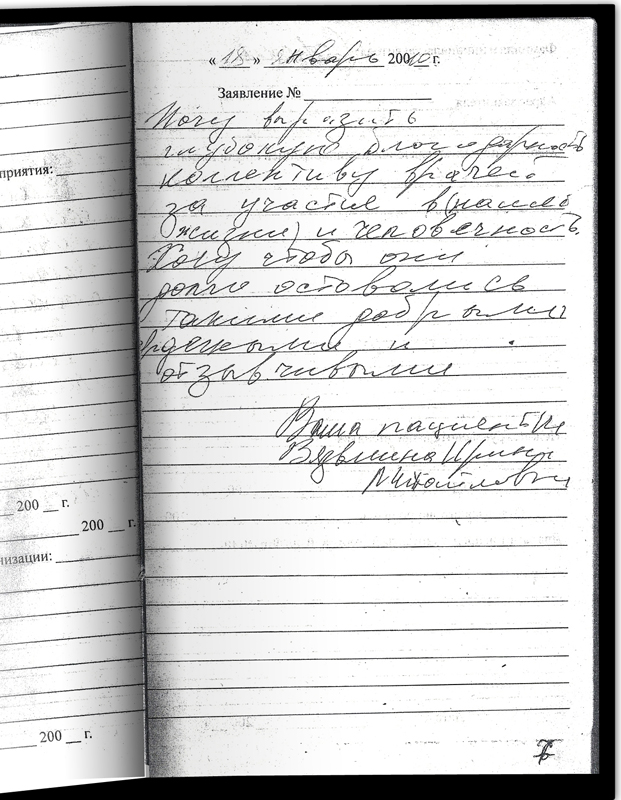 « 18 » январь 200 10 г.
Заявление №
Хочу выразить
глубокую благодарность
коллективу врачей
приятия:
за участие в (нашей
жизни) и человечность.
Хочу чтобы они
долго оставались
такими добрыми
и
отзывчивыми
Ваша пациентка
Ирина
Михайловна
200 __ г.
200 __ г.
низации:
200 __ г.